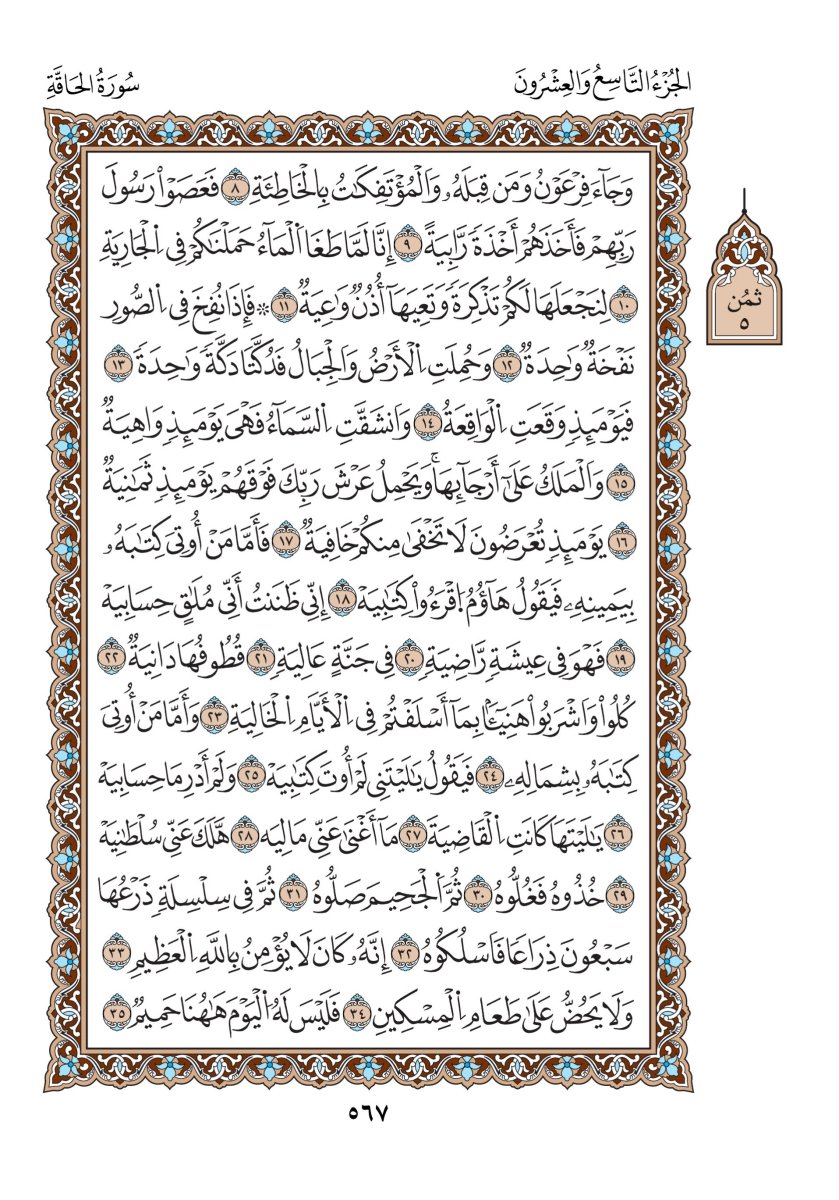 الجُزْءُ التَّاسِعُ وَالعِشْرُونَ
سُورَةُ الحَاقَّةِ
وَجَآءَ فِرْعَوْنُ وَمَن قَبْلَهُۥ وَالْمُؤْتَفِكَٰتُ بِالْخَاطِئَةِ ٨ فَعَصَوْاْ رَسُولَ
رَبِّهِمْ فَأَخَذَهُمْ أَخْذَةً رَّابِيَةً ٩ إِنَّا لَمَّا طَغَا اَلْمَآءُ حَمَلْنَٰكُمْ فِى اِلْجَارِيَةِ
١٠ لِنَجْعَلَهَا لَكُمْ تَذْكِرَةً وَتَعِيَهَآ أُذُنٌ وَٰعِيَةٌ ١١ ۞ فَإِذَا نُفِخَ فِى اِلصُّورِ
نَفْخَةٌ وَٰحِدَةٌ ١٢ وَحُمِلَتِ اِلْأَرْضُ وَالْجِبَالُ فَدُكَّتَا دَكَّةً وَٰحِدَةً ١٣
فَيَوْمَئِذٍ وَقَعَتِ اِلْوَاقِعَةُ ١٤ وَانشَقَّتِ اِلسَّمَآءُ فَهْىَ يَوْمَئِذٍ وَاهِيَةٌ
١٥ وَالْمَلَكُ عَلَىٰٓ أَرْجَآئِهَاۚ وَيَحْمِلُ عَرْشَ رَبِّكَ فَوْقَهُمْ يَوْمَئِذٍ ثَمَٰنِيَةٌ
١٦ يَوْمَئِذٍ تُعْرَضُونَ لَا تَخْفَىٰ مِنكُمْ خَافِيَةٌ ١٧ فَأَمَّا مَنْ أُوتِىَ كِتَٰبَهُۥ
بِيَمِينِهِۦ فَيَقُولُ هَآؤُمُ اُقْرَءُواْ كِتَٰبِيَهْ ١٨ إِنِّى ظَنَنتُ أَنِّى مُلَٰقٍ حِسَابِيَهْ
١٩ فَهْوَ فِى عِيشَةٍ رَّاضِيَةٍ ٢٠ فِى جَنَّةٍ عَالِيَةٍ ٢١ قُطُوفُهَا دَانِيَةٌ ٢٢
كُلُواْ وَاشْرَبُواْ هَنِيٓـَٔۢا بِمَآ أَسْلَفْتُمْ فِى اِلْأَيَّامِ اِلْخَالِيَةِ ٢٣ وَأَمَّا مَنْ أُوتِىَ
كِتَٰبَهُۥ بِشِمَالِهِۦ ٢٤ فَيَقُولُ يَٰلَيْتَنِى لَمْ أُوتَ كِتَٰبِيَهْ ٢٥ وَلَمْ أَدْرِ مَا حِسَابِيَهْ
٢٦ يَٰلَيْتَهَا كَانَتِ اِلْقَاضِيَةَ ٢٧ مَآ أَغْنَىٰ عَنِّى مَالِيَه ٢٨ هَّلَكَ عَنِّى سُلْطَٰنِيَهْ
٢٩ خُذُوهُ فَغُلُّوهُ ٣٠ ثُمَّ اَلْجَحِيمَ صَلُّوهُ ٣١ ثُمَّ فِى سِلْسِلَةٍ ذَرْعُهَا
سَبْعُونَ ذِرَاعًا فَاسْلُكُوهُ ٣٢ إِنَّهُۥ كَانَ لَا يُؤْمِنُ بِاللَّهِ اِلْعَظِيمِ ٣٣
وَلَا يَحُضُّ عَلَىٰ طَعَامِ اِلْمِسْكِينِ ٣٤ فَلَيْسَ لَهُ اُلْيَوْمَ هَٰهُنَا حَمِيمٌ ٣٥
ثُمُن
٥
٥٦٧